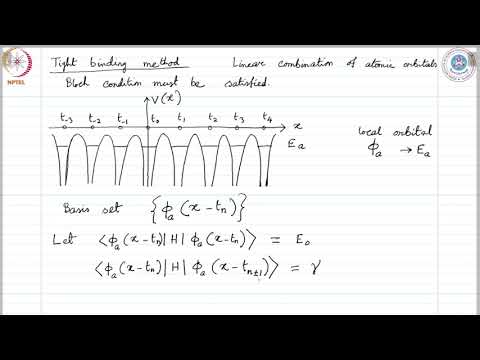 NPTEL
Tight binding method Linear combination of atomic orbitals
Bloch condition must be satisfied.
V(x)
t-3 t-2 t-1 t0 t1 t2 t3 t4 x
Ea
local orbital
ϕa → Ea
Basis set {ϕa(x-tn)}
Let ⟨ϕa(x-tn)|H|ϕa(x-tn)⟩ = E0
⟨ϕa(x-tn)|H|ϕa(x-tn±1)⟩ = γ